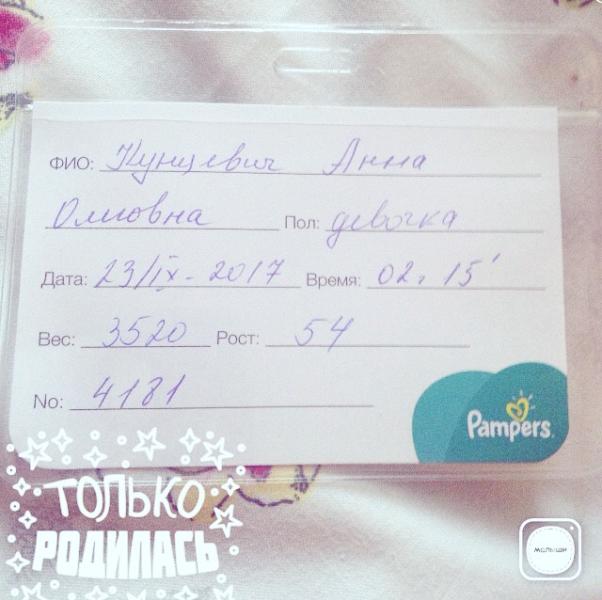 ФИО: Кунцевич Анна
Олеговна Пол: девочка
Дата: 23/IX - 2017 Время: 02. 15'
Вес: 3520 Рост: 54
No: 4181
Pampers
ТОЛЬКО
РОДИЛАСЬ
малыши